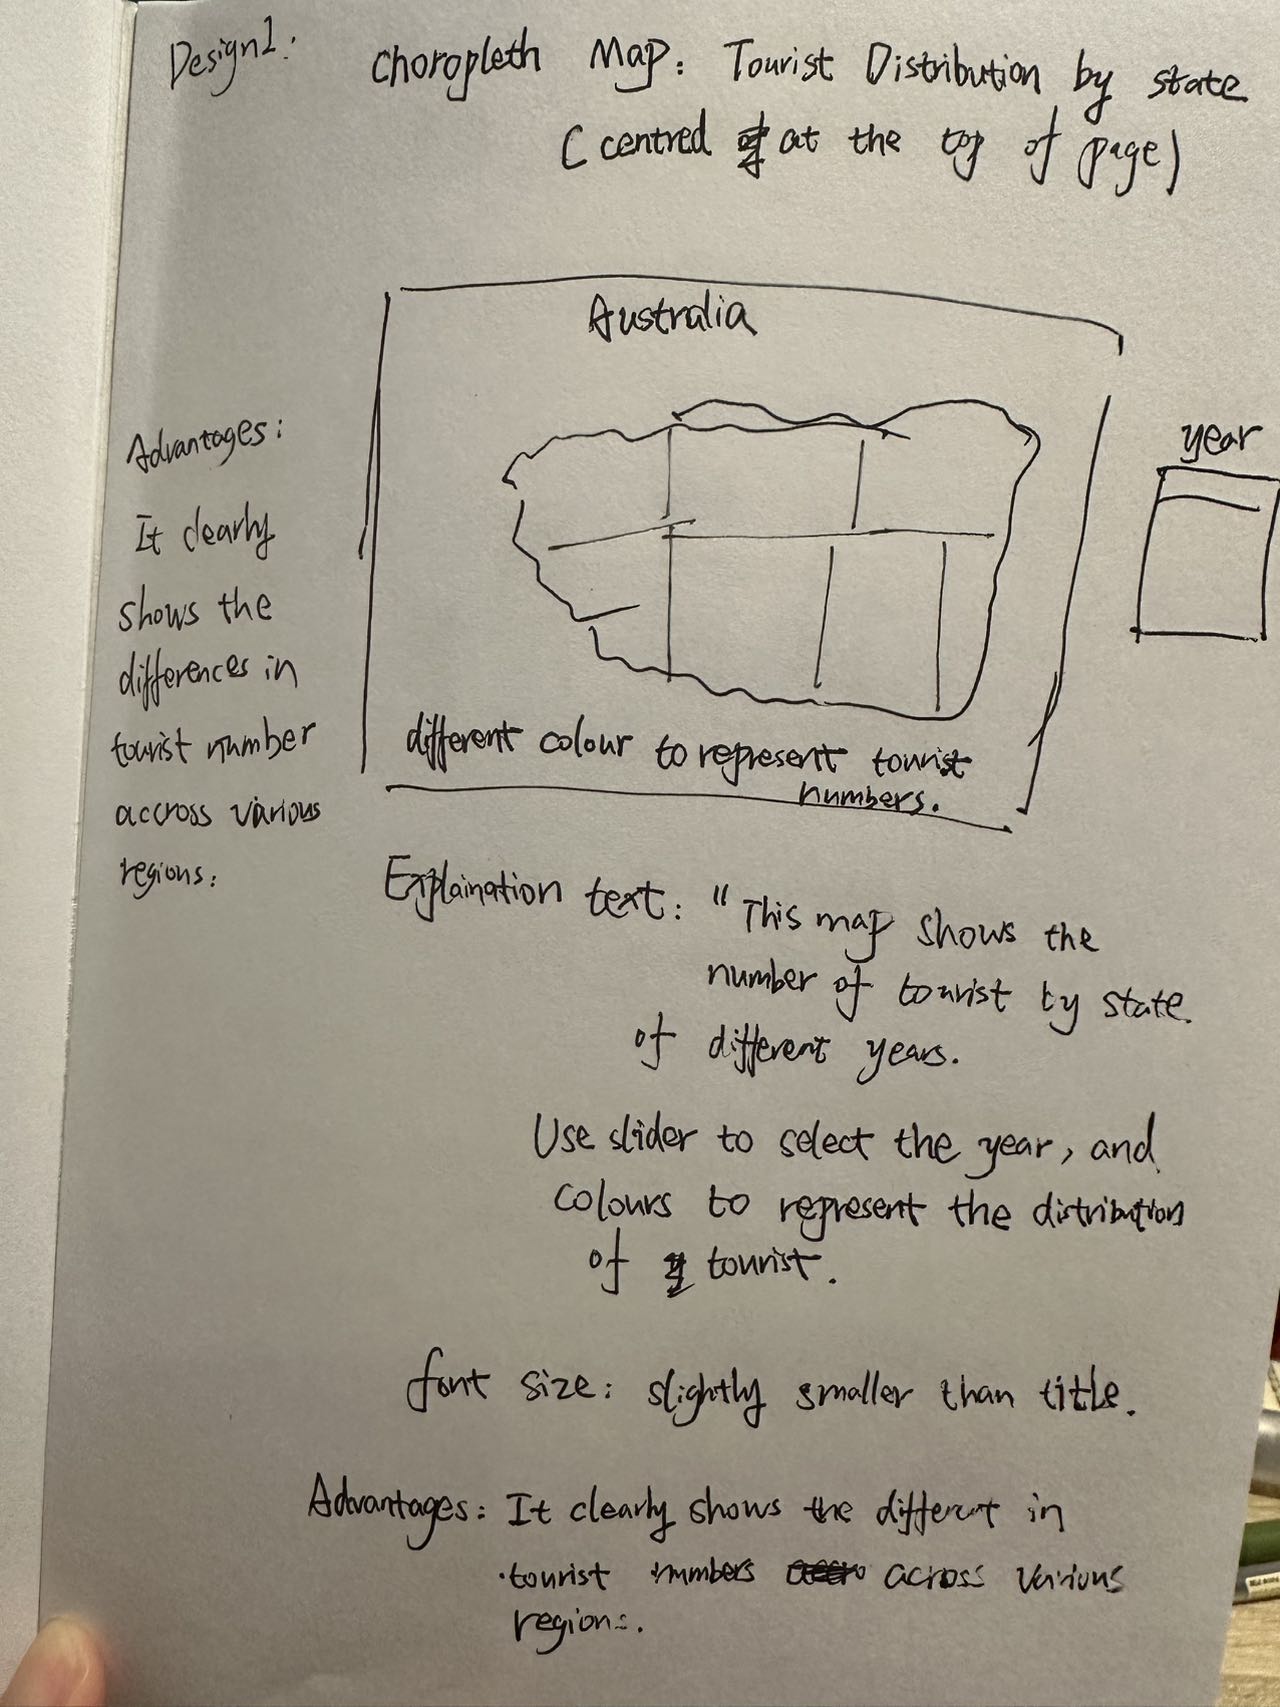 Design1:
Choropleth Map: Tourist Distribution by state
(centred at the top of page)
Australia
year
Advantages:
It clearly
shows the
differences in
tourist number
accross various
regions.
different colour to represent tourist
numbers.
Explaination text: "This map shows the
number of tourist by state
of different years.
Use slider to select the year, and
colours to represent the distribution
of tourist.
font size: slightly smaller than title.
Advantages: It clearly shows the different in
tourist numbers across various
regions.